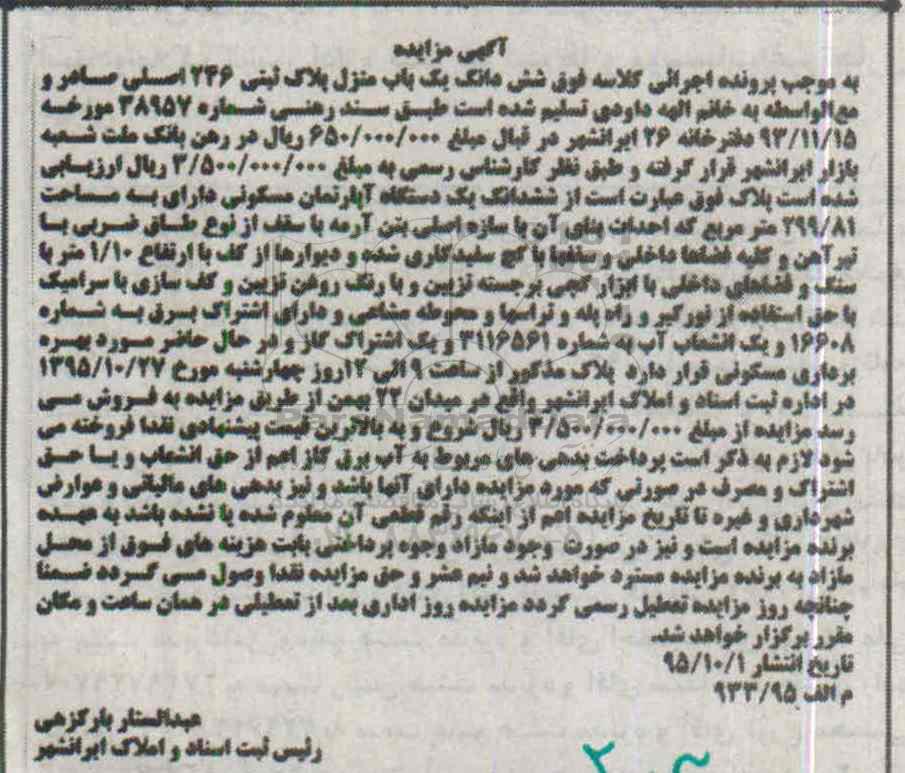 آگهی مزایده
به موجب پرونده اجرائی کلاسه فوق شش دانگ یک باب منزل پلاک ثبتی ۲۴۶ اصلی صادر و
مع‌الواسطه به خانم الهه داودی تسلیم شده است طبق سند رهنی شماره ۳۸۹۵۷ مورخه
۹۳/۱۱/۱۵ دفترخانه ۲۶ ایرانشهر در قبال مبلغ ۶۵۰/۰۰۰/۰۰۰ ریال در رهن بانک ملت شعبه
بازار ایرانشهر قرار گرفته و طبق نظر کارشناس رسمی به مبلغ ۳/۵۰۰/۰۰۰/۰۰۰ ریال ارزیابی
شده است پلاک فوق عبارت است از ششدانگ یک دستگاه آپارتمان مسکونی دارای به مساحت
۲۹۹/۸۱ متر مربع که احداث بنای آن با سازه اصلی بتن آرمه با سقف از نوع طاق ضربی با
تیر آهن و کلیه فضاها داخلی و سقفها با گچ سفیدکاری شده و دیوارها از کف با ارتفاع ۱/۱۰ متر با
سنگ و فضاهای داخلی با ابزار گچی برجسته تزیین و با رنگ روغن تزیین و کف سازی با سرامیک
با حق استفاده از نورگیر و راه پله و تراسها و محوطه مشاعی و دارای اشتراک برق به شماره
۱۶۶۰۸ و یک انشعاب آب به شماره ۳۱۱۶۵۶۱ و یک اشتراک گاز و در حال حاضر مورد بهره
برداری مسکونی قرار دارد پلاک مذکور از ساعت ۹ الی ۱۲ روز چهارشنبه مورخ ۱۳۹۵/۱۰/۲۷
در اداره ثبت اسناد و املاک ایرانشهر واقع در میدان ۲۲ بهمن از طریق مزایده به فروش می
رسد مزایده از مبلغ ۳/۵۰۰/۰۰۰/۰۰۰ ریال شروع و به بالاترین قیمت پیشنهادی نقدا فروخته می
شود لازم به ذکر است پرداخت بدهی های مربوط به آب برق گاز اعم از حق انشعاب و یا حق
اشتراک و مصرف در صورتی که مورد مزایده دارای آنها باشد و نیز بدهی های مالیاتی و عوارض
شهرداری و غیره تا تاریخ مزایده اعم از اینکه رقم قطعی آن معلوم شده یا نشده باشد به عهده
برنده مزایده است و نیز در صورت وجود مازاد وجوه پرداختی بابت هزینه های فوق از محل
مازاد به برنده مزایده مسترد خواهد شد و نیم عشر و حق مزایده نقدا وصول می گردد ضمنا
چنانچه روز مزایده تعطیل رسمی گردد مزایده روز اداری بعد از تعطیلی در همان ساعت و مکان
مقرر برگزار خواهد شد.
تاریخ انتشار ۹۵/۱۰/۱
م الف ۹۳۳/۹۵
عبدالستار بارکزهی
رئیس ثبت اسناد و املاک ایرانشهر